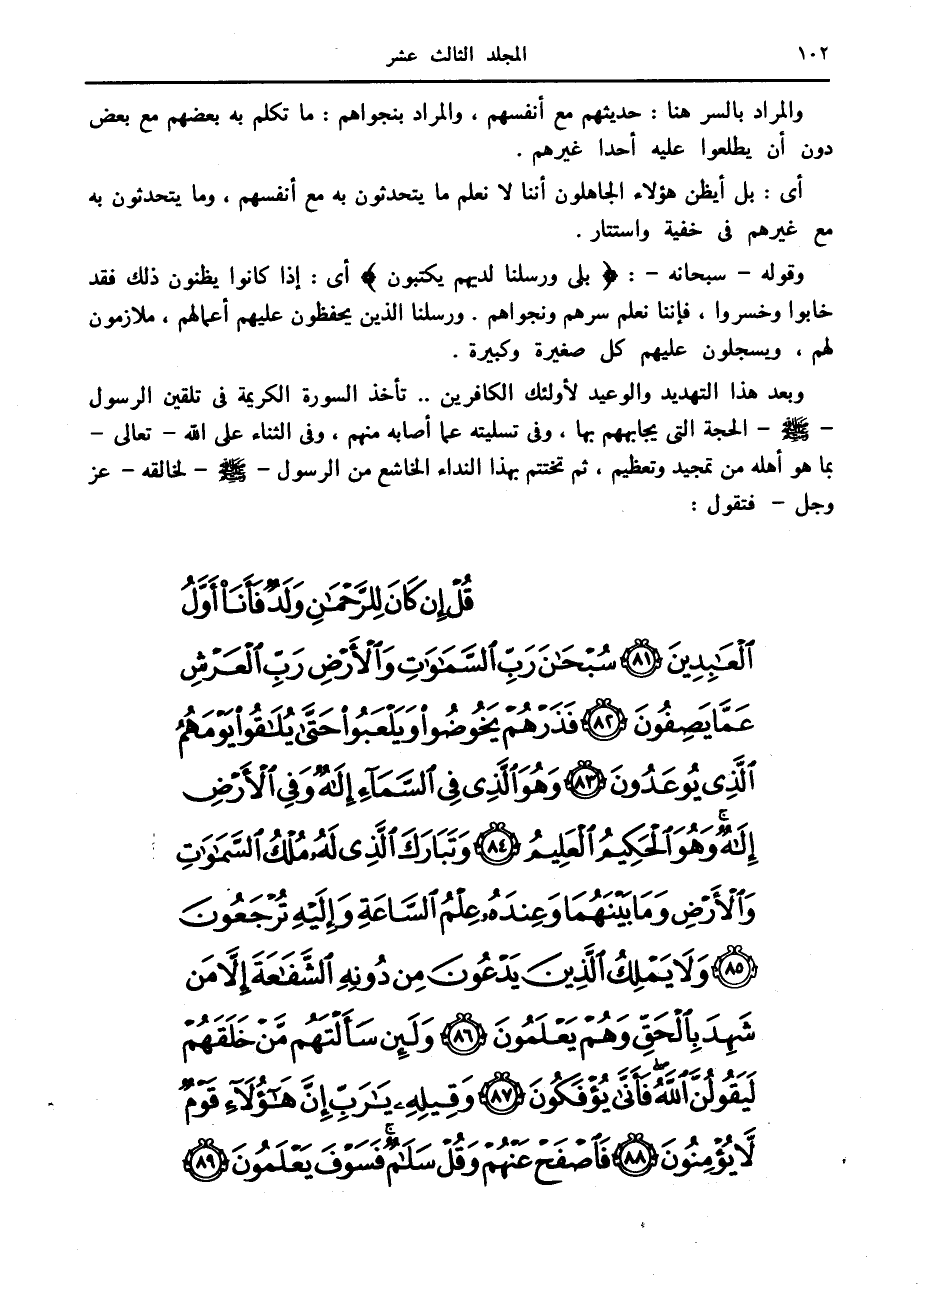 ١٠٢ المجلد الثالث عشر
والمراد بالسر هنا : حديثهم مع أنفسهم ، والمراد بنجواهم : ما تكلم به بعضهم مع بعض
دون أن يطلعوا عليه أحدا غيرهم .
أى : بل أيظن هؤلاء الجاهلون أننا لا نعلم ما يتحدثون به مع أنفسهم ، وما يتحدثون به
مع غيرهم فى خفية واستتار .
وقوله – سبحانه – : ﴿ بلى ورسلنا لديهم يكتبون ﴾ أى : إذا كانوا يظنون ذلك فقد
خابوا وخسروا ، فإننا نعلم سرهم ونجواهم . ورسلنا الذين يحفظون عليهم أعمالهم ، ملازمون
لهم ، ويسجلون عليهم كل صغيرة وكبيرة .
وبعد هذا التهديد والوعيد لأولئك الكافرين .. تأخذ السورة الكريمة فى تلقين الرسول
– ﷺ – الحجة التى يجابههم بها ، وفى تسليته عما أصابه منهم ، وفى الثناء على الله – تعالى –
بما هو أهله من تمجيد وتعظيم ، ثم تختتم بهذا النداء الخاشع من الرسول – ﷺ – لخالقه – عز
وجل – فتقول :
قُلْ إِن كَانَ لِلرَّحْمَٰنِ وَلَدٌ فَأَنَا۠ أَوَّلُ
ٱلْعَٰبِدِينَ ٨١ سُبْحَٰنَ رَبِّ ٱلسَّمَٰوَٰتِ وَٱلْأَرْضِ رَبِّ ٱلْعَرْشِ
عَمَّا يَصِفُونَ ٨٢ فَذَرْهُمْ يَخُوضُوا۟ وَيَلْعَبُوا۟ حَتَّىٰ يُلَٰقُوا۟ يَوْمَهُمُ
ٱلَّذِى يُوعَدُونَ ٨٣ وَهُوَ ٱلَّذِى فِى ٱلسَّمَآءِ إِلَٰهٌ وَفِى ٱلْأَرْضِ
إِلَٰهٌ ۚ وَهُوَ ٱلْحَكِيمُ ٱلْعَلِيمُ ٨٤ وَتَبَارَكَ ٱلَّذِى لَهُۥ مُلْكُ ٱلسَّمَٰوَٰتِ
وَٱلْأَرْضِ وَمَا بَيْنَهُمَا وَعِندَهُۥ عِلْمُ ٱلسَّاعَةِ وَإِلَيْهِ تُرْجَعُونَ
٨٥ وَلَا يَمْلِكُ ٱلَّذِينَ يَدْعُونَ مِن دُونِهِ ٱلشَّفَٰعَةَ إِلَّا مَن
شَهِدَ بِٱلْحَقِّ وَهُمْ يَعْلَمُونَ ٨٦ وَلَئِن سَأَلْتَهُم مَّنْ خَلَقَهُمْ
لَيَقُولُنَّ ٱللَّهُ ۖ فَأَنَّىٰ يُؤْفَكُونَ ٨٧ وَقِيلِهِۦ يَٰرَبِّ إِنَّ هَٰٓؤُلَآءِ قَوْمٌ
لَّا يُؤْمِنُونَ ٨٨ فَٱصْفَحْ عَنْهُمْ وَقُلْ سَلَٰمٌ ۚ فَسَوْفَ يَعْلَمُونَ ٨٩